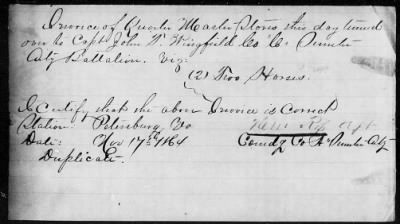 Invoice of Quarter Master Stores this day turned
over to Capt John W. Wingfield Co "C" Sumter
Arty Battalion. Viz:
(2) Two Horses.
I Certify that the above Invoice is Correct
Station: Petersburg, Va
Date: Nov 17th 1864 Comdg Co A Sumter Arty
Duplicate.